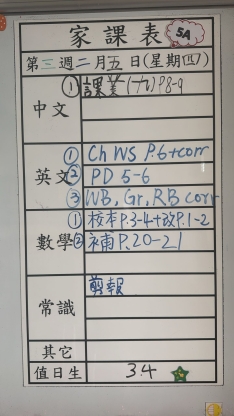 家課表 5A
第三週二月五日(星期四)
中文 ① 課業(十九)P8-9
英文 ① Ch WS P.6+corr
② PD 5-6
③ WB, Gr, RB corr
數學 ① 校本P.3-4+改P.1-2
② 補P.20-21
常識 剪報
其它
值日生 3.4